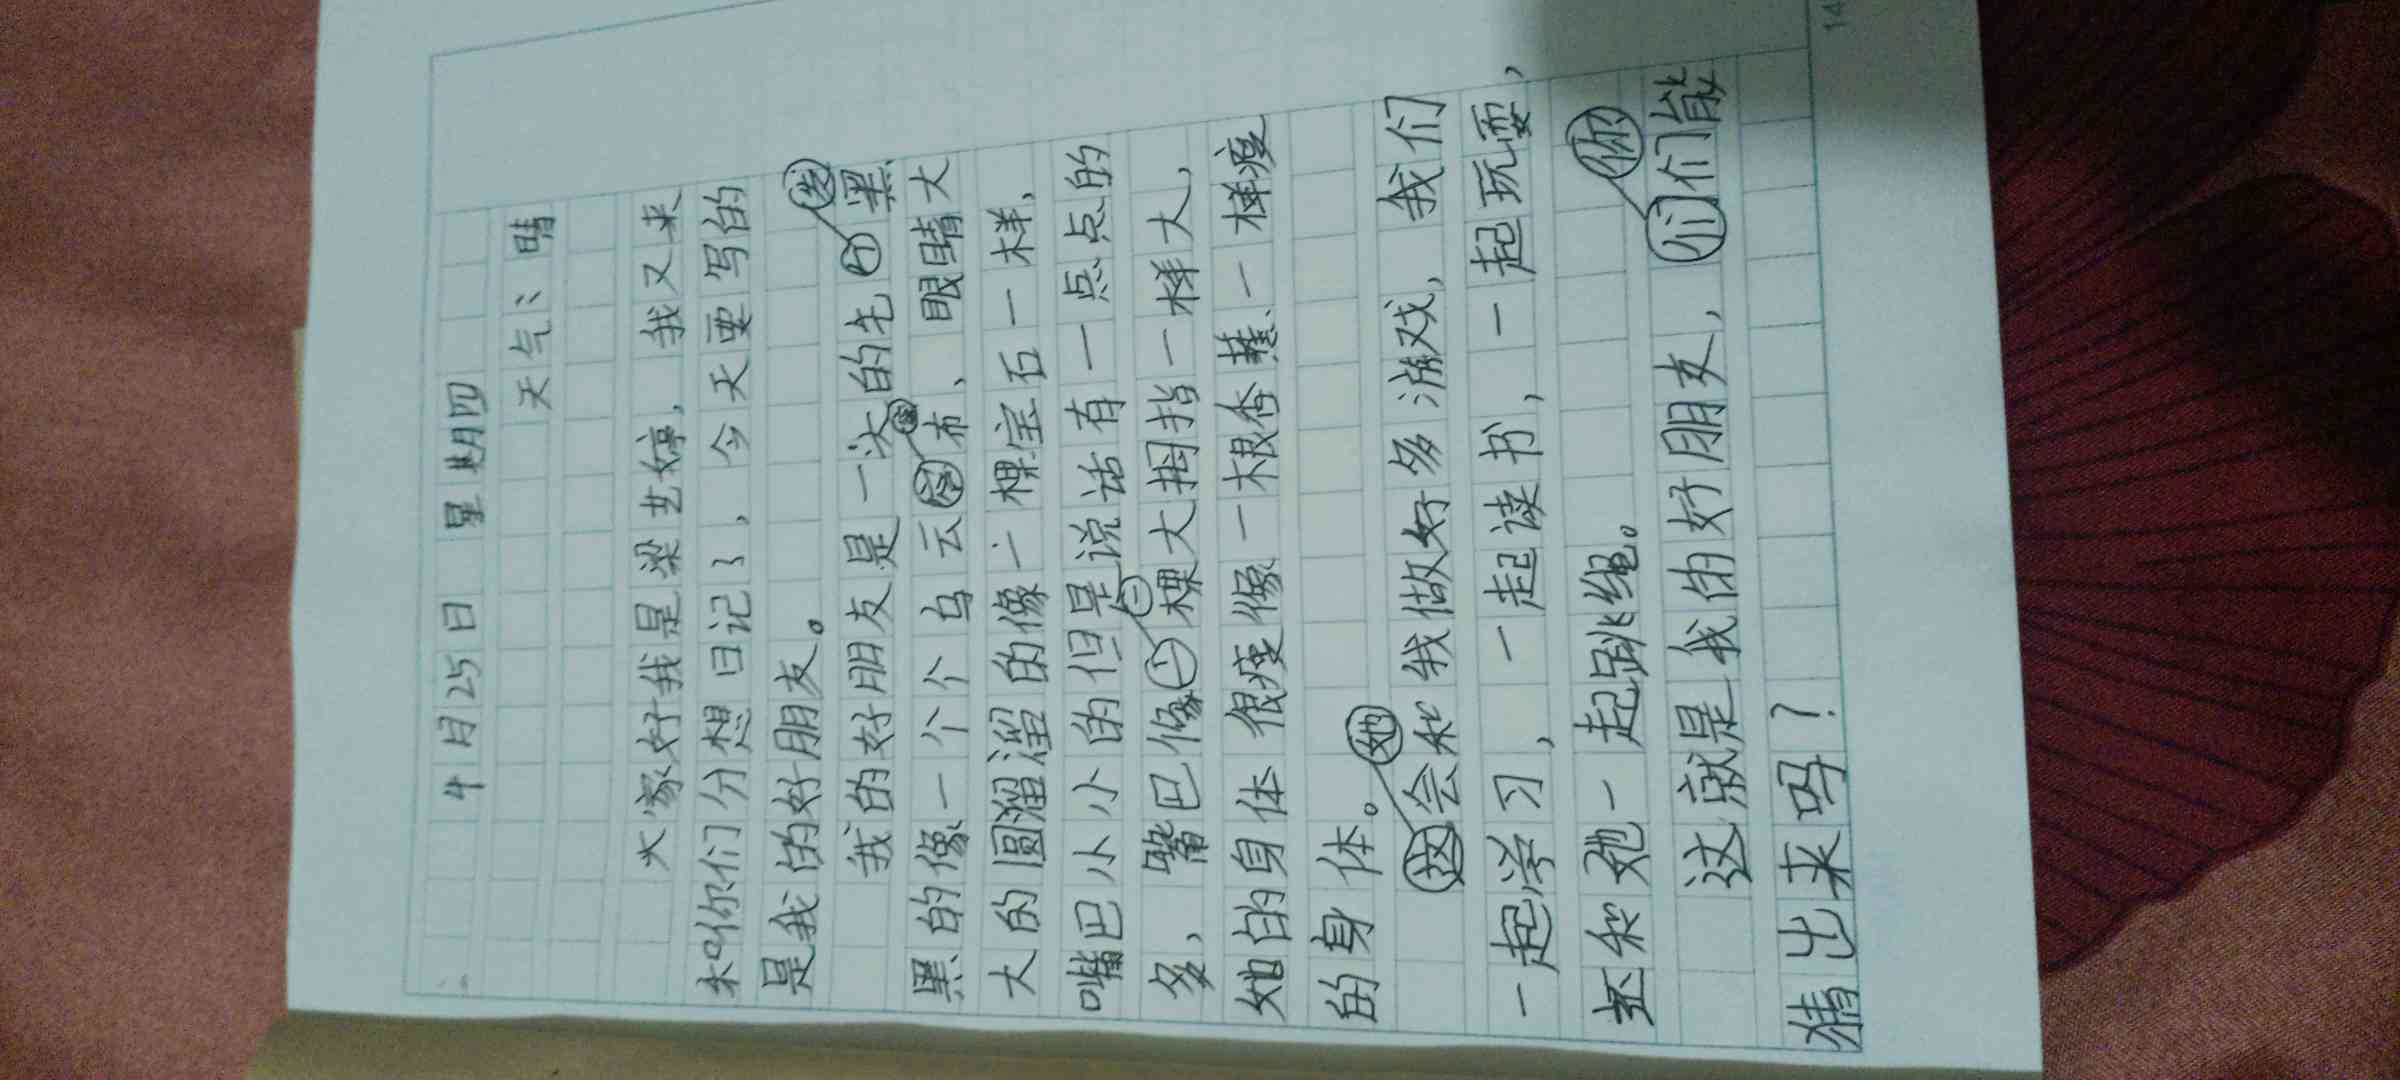 4月25日 星期四
天气：晴
大家好我是梁艺婷，我又来
和你们分想日记了，今天要写的
是我的好朋友。
我的好朋友是一头的毛发黑
黑的像一个个乌云密布，眼睛大
大的圆溜溜的像一棵宝石一样，
嘴巴小小的但是说话有一点点的
多，嘴巴像一棵大拇指一样大，
她的身体很瘦像一根香蕉一样瘦
的身体。
她会和我做好多游戏，我们
一起学习，一起读书，一起玩耍，
还和她一起跳绳。
这就是我的好朋友，你们能
猜出来吗？
14